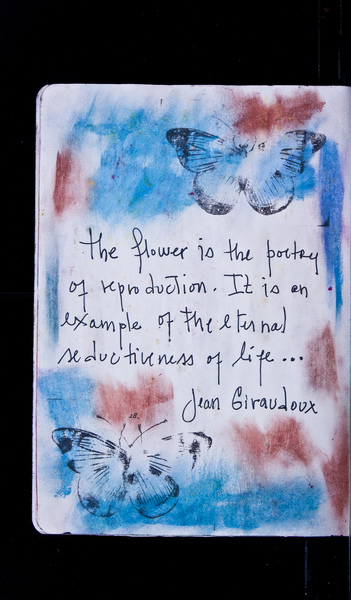 the flower is the poetry
of reproduction. It is an
example of the eternal
seductiveness of life...
Jean Giraudoux
28.